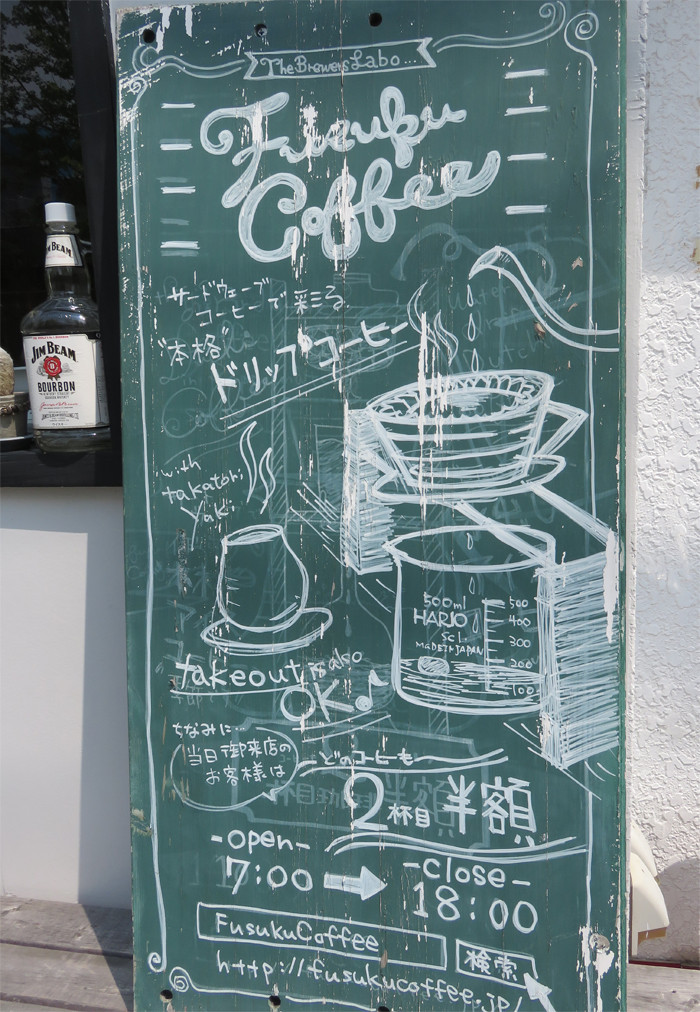 The Brewers Labo...
Fusuku
Coffee
サードウェーブ
コーヒーで彩る
"本格"
ドリップコーヒー
with
takatori
Yaki
500ml
HARIO
SCI.
MADE IN JAPAN
500
400
300
200
100
takeout is also
OK♪
ちなみに...
当日御来店の
お客様は
どのコーヒーも
2杯目半額!!
-open-
7:00
-close-
18:00
FusukuCoffee
検索
http://fusukucoffee.jp/
JIM BEAM
JIM BEAM
BOURBON